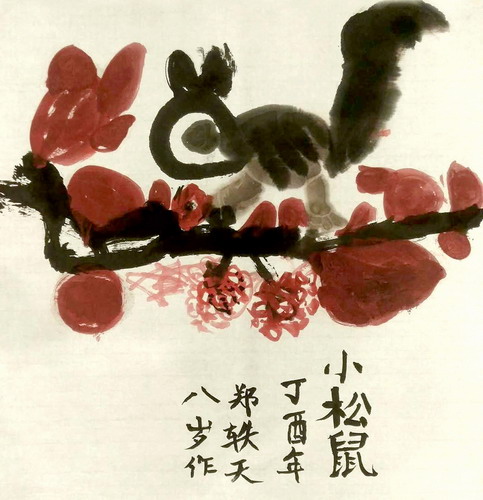 小松鼠
丁酉年
郑轶天
八岁作